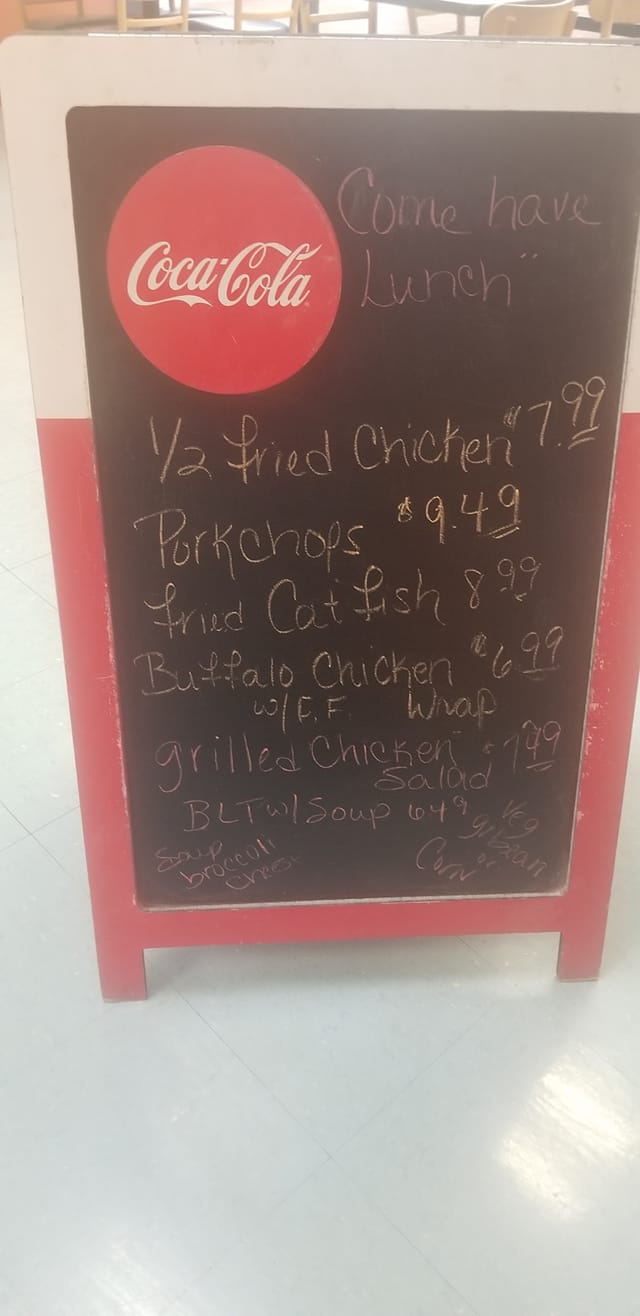 Coca-Cola
Come have
Lunch"
1/2 fried Chicken $7.99
Porkchops $9.49
fried Catfish 8 99
Buffalo Chicken $6.99
w/ F.F. Wrap
grilled Chicken $7.49
Salad
BLT w/ Soup 6 49
Soup
broccoli
cheese
Veg
gr bean
or
Corn